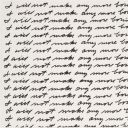 I will not make any more
I will not make any more
I will not make any more
I will not make any more
I will not make any more
I will not make any more
I will not make any more
I will not make any more
I will not make any more
I will not make any more